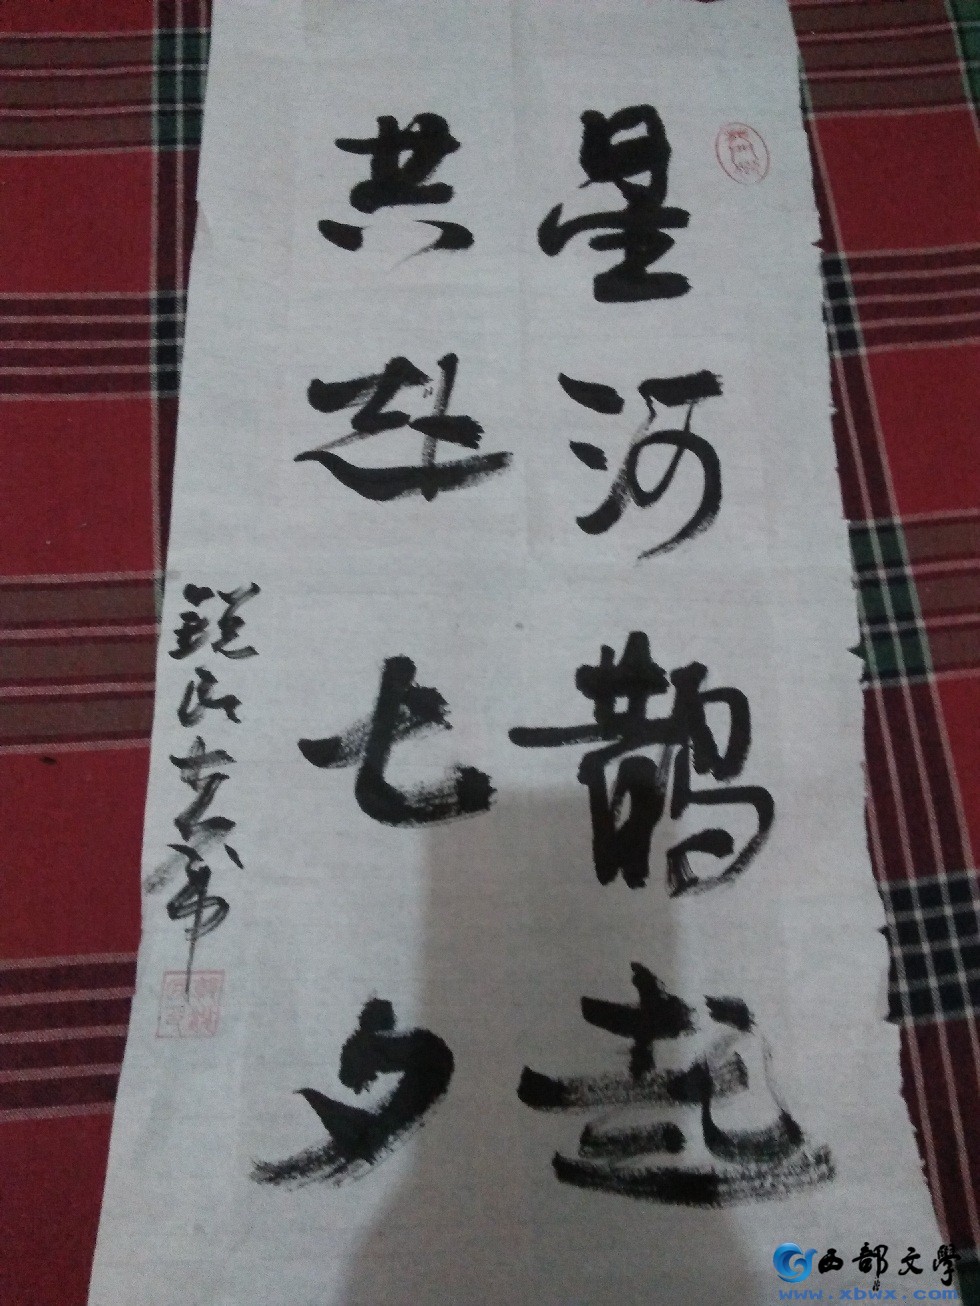 星河鹊起
共赴七夕
锐民
西部文學
www.xbwx.com